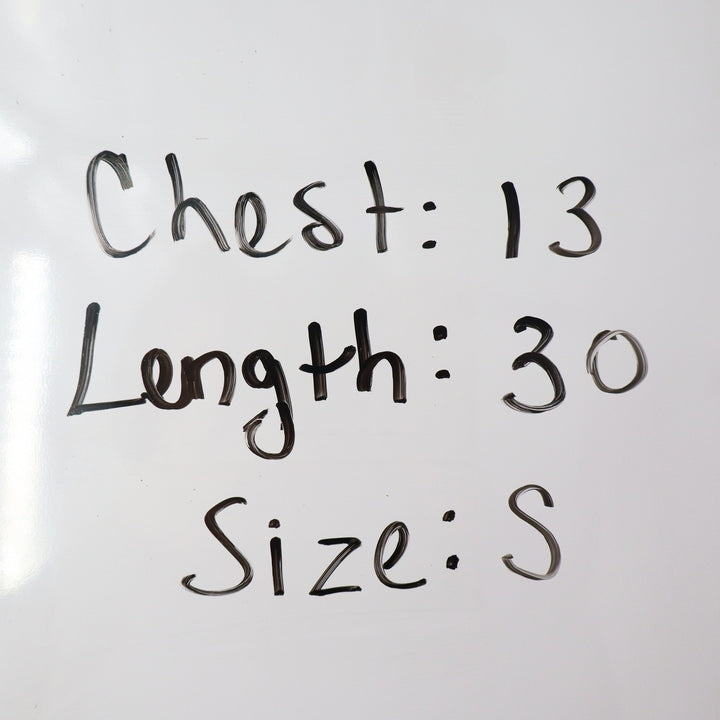 Chest: 13
Length: 30
Size: S